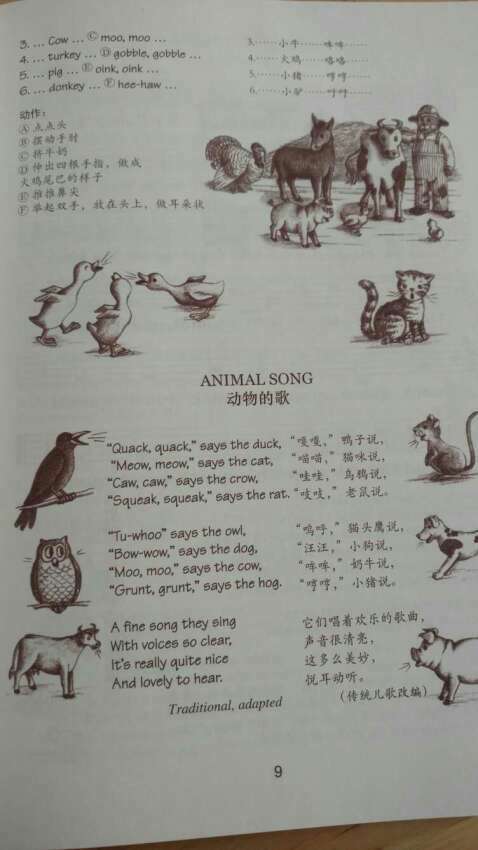 3. ... Cow ... Ⓒ moo, moo ...
4. ... turkey ... Ⓓ gobble, gobble ...
5. ... pig ... Ⓔ oink, oink ...
6. ... donkey ... Ⓕ hee-haw ...
3.……小牛……哞哞……
4.……火鸡……咯咯……
5.……小猪……哼哼……
6.……小驴……呼呼……
动作：
Ⓐ 点点头
Ⓑ 摆动手肘
Ⓒ 挤牛奶
Ⓓ 伸出四根手指，做成
火鸡尾巴的样子
Ⓔ 推推鼻尖
Ⓕ 举起双手，放在头上，做耳朵状
ANIMAL SONG
动物的歌
“Quack, quack,” says the duck,
“Meow, meow,” says the cat,
“Caw, caw,” says the crow,
“Squeak, squeak,” says the rat.
“嘎嘎，”鸭子说，
“喵喵，”猫咪说，
“哇哇，”乌鸦说，
“吱吱，”老鼠说。
“Tu-whoo” says the owl,
“Bow-wow,” says the dog,
“Moo, moo,” says the cow,
“Grunt, grunt,” says the hog.
“呜呼，”猫头鹰说，
“汪汪，”小狗说，
“哞哞，”奶牛说，
“哼哼，”小猪说。
A fine song they sing
With voices so clear,
It's really quite nice
And lovely to hear.
Traditional, adapted
它们唱着欢乐的歌曲，
声音很清亮，
这多么美妙，
悦耳动听。
（传统儿歌改编）
9